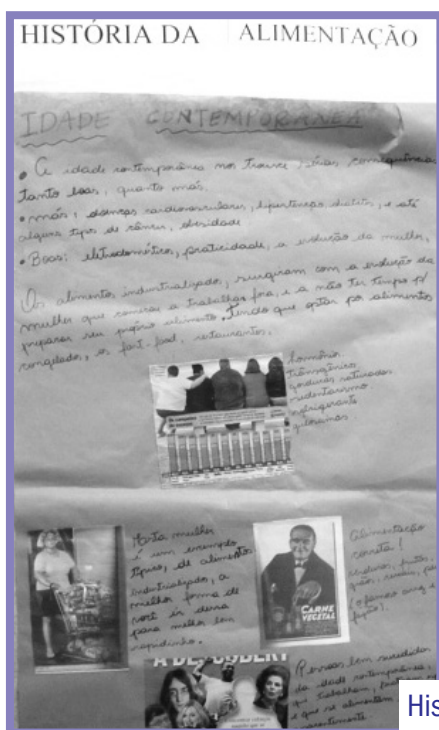 HISTÓRIA DA ALIMENTAÇÃO
IDADE CONTEMPORÂNEA
• A idade contemporânea nos trouxe várias consequências
tanto boas, quanto más.
• más: doenças cardiovasculares, hipertenção diabetis, e até
alguns tipos de câncer, obesidade
• Boas: eletrodoméstico, praticidade, a evolução da mulher,
Os alimentos industrializado, surgiram com a evolução da
mulher que começou a trabalhar fora, e a não ter tempo p/
preparar seu próprio alimento. Tendo que optar por alimentos
congelado, os fart-food, restaurantes.
hormônio
transgênico
gorduras saturadas
sedentarismo
refrigerante
guloseimas
Esta mulher
é um exemplo
típico, de alimentos
industrializado, a
melhor forma de
você ir dessa
para melhor bem
rapidinho.
CARNE
VEGETAL
Alimentação
correta!
(o famoso arroz e
feijão).
A DESCOBERT
Pessoas bem sucedidas
da idade contemporânea,
que trabalham,
e que se alimentam
His